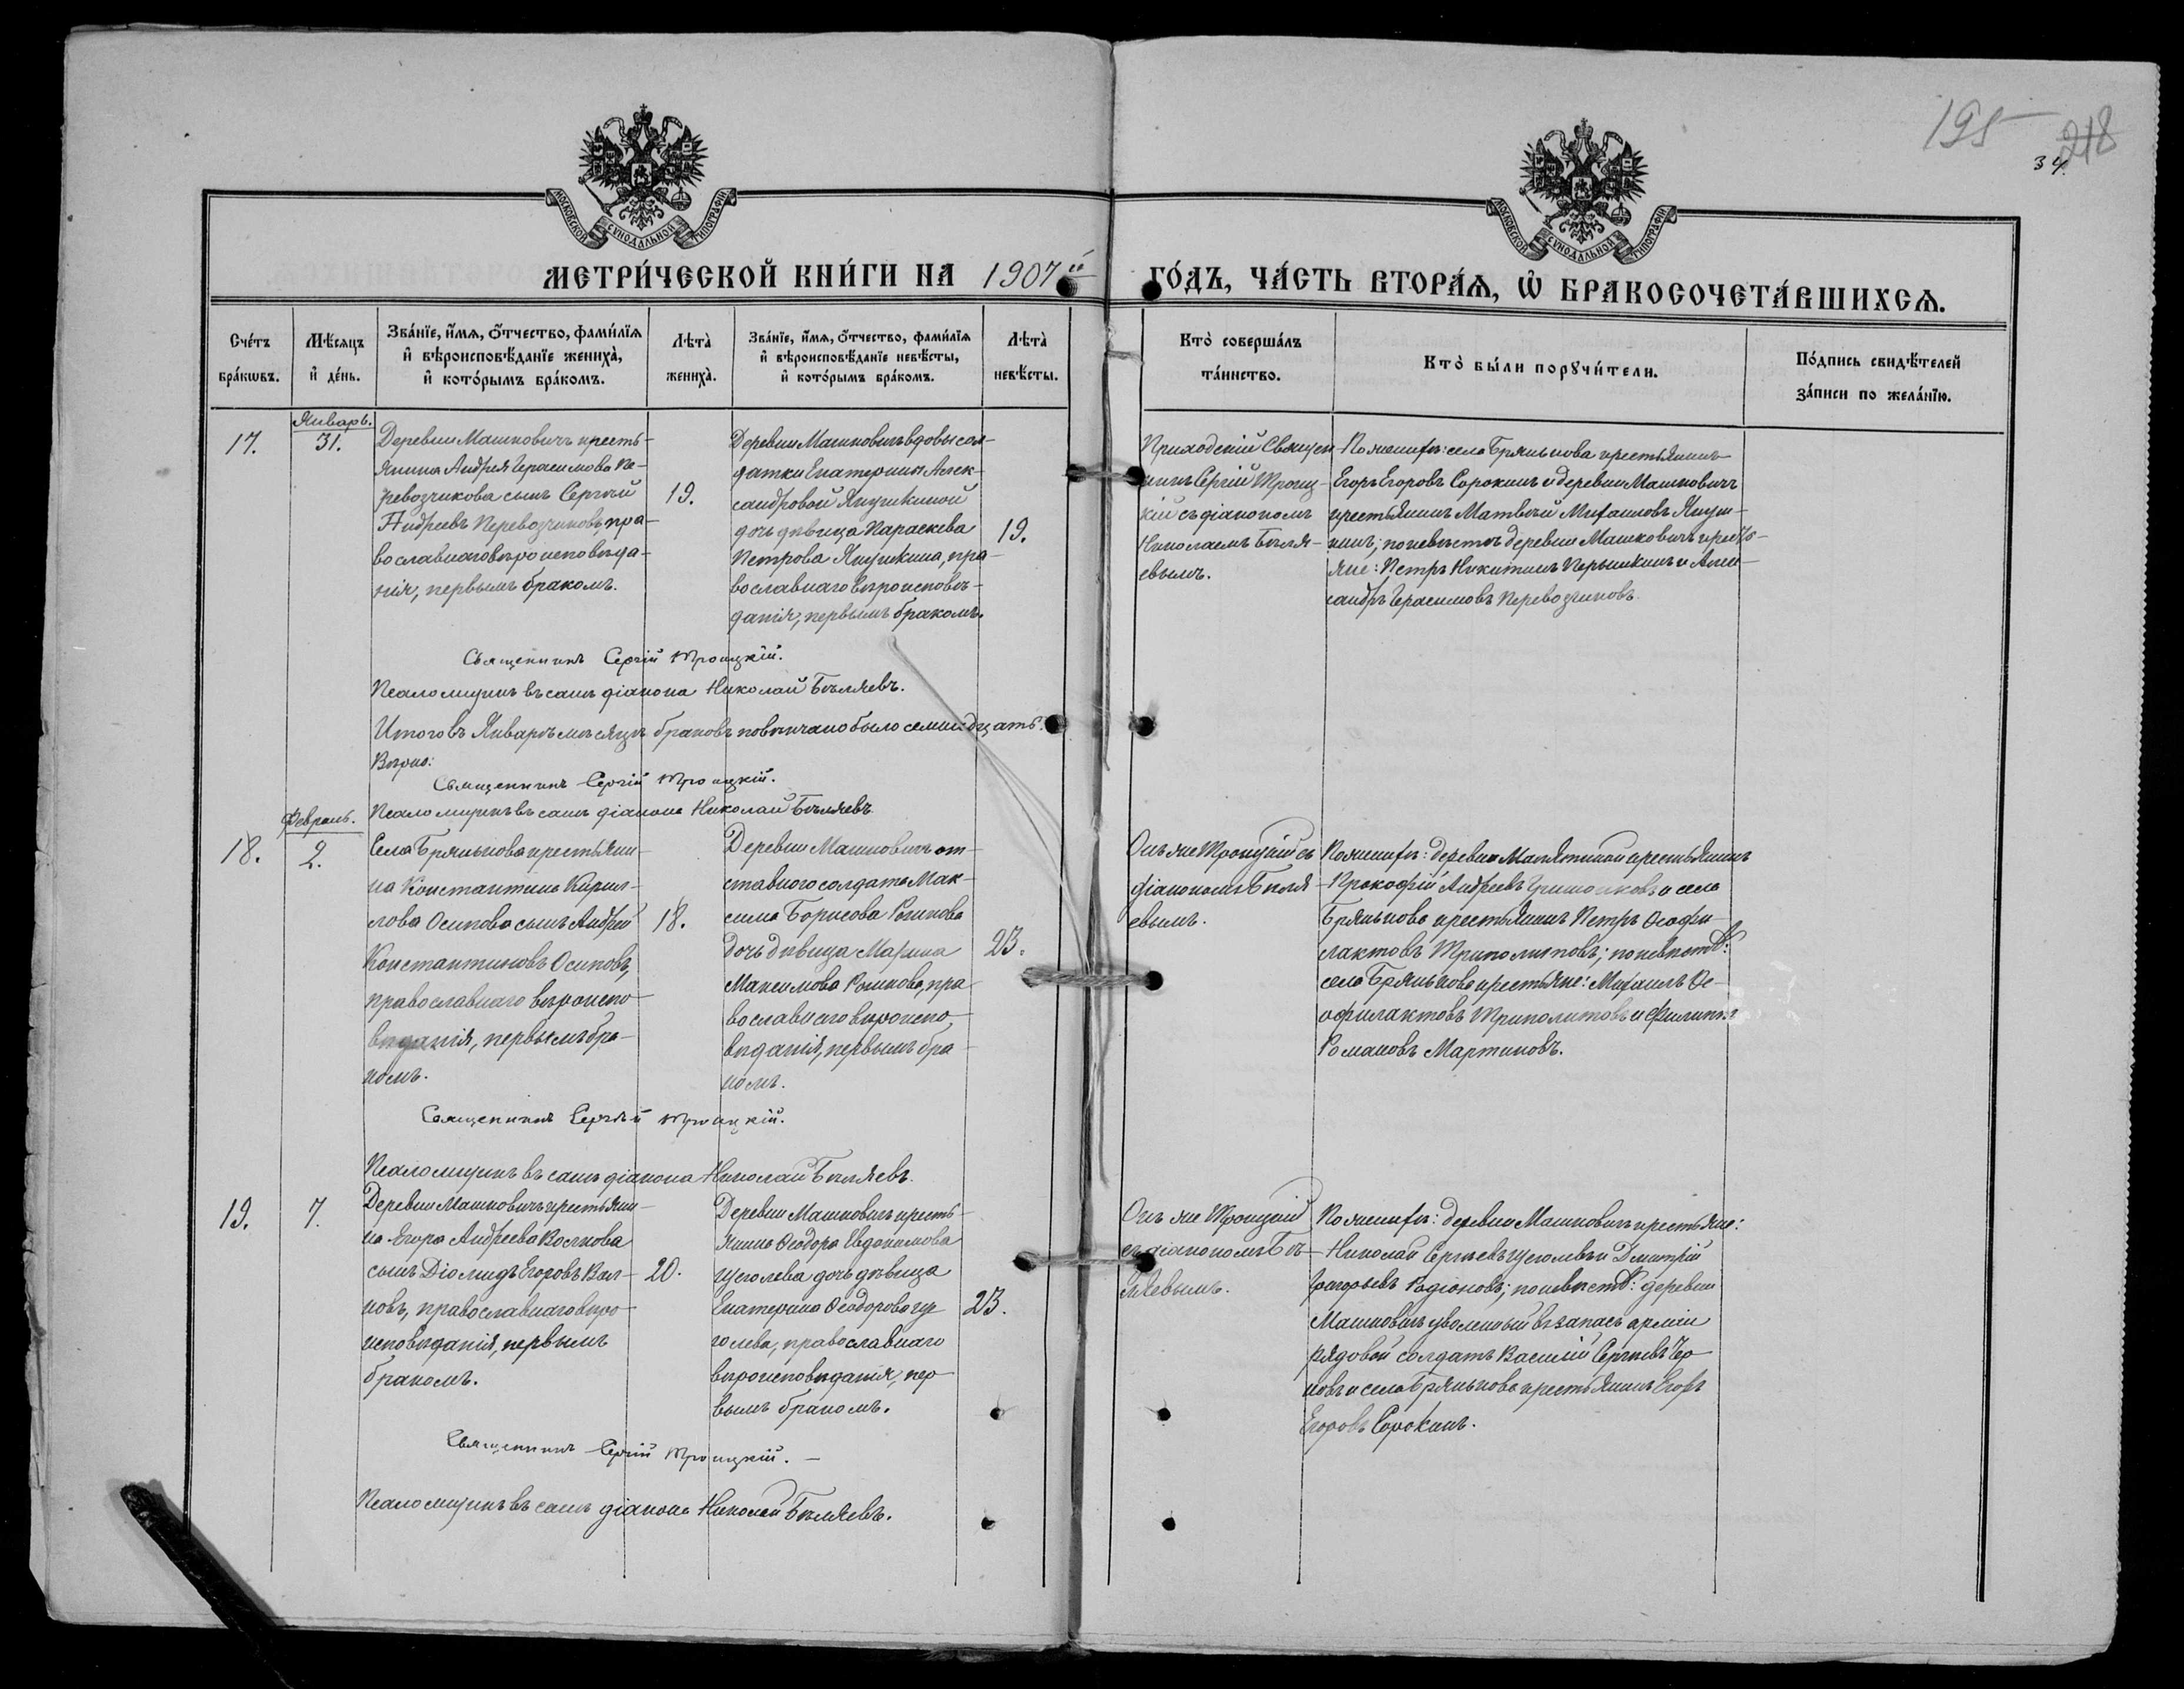 195
218
34
МОСКОВСКОЙ СУНОДАЛЬНОЙ ТИПОГРАФІИ
МОСКОВСКОЙ СУНОДАЛЬНОЙ ТИПОГРАФІИ
МЕТРИ́ЧЕСКОЙ КНИ́ГИ НА 1907й ГО́ДЪ, ЧА́СТЬ ВТОРА́Ѧ, Ѽ БРАКОСОЧЕТА́ВШИХСѦ.
Сче́тъ бра́кѡвъ.
Мѣ́сяцъ и де́нь.
Зва́нїе, и́мѧ, о́тчество, фами́лїѧ
и вѣроисповѣ́данїе жениха̀,
и кото́рымъ бра́комъ.
Лѣта̀
жениха̀.
Зва́нїе, и́мѧ, о́тчество, фами́лїѧ
и вѣроисповѣ́данїе невѣ́сты,
и кото́рымъ бра́комъ.
Лѣта̀
невѣ́сты.
Кто̀ соверша́лъ
та́инство.
Кто̀ бы́ли порꙋчи́тели.
По́дпись свидѣ́телей
за́писи по жела́нїю.
Январь.
17.
31.
Деревни Машковичъ кресть-
янина Андрея Герасимова Пе-
ревозчикова сынъ Сергѣй
Андреевъ Перевозчиковъ, пра-
вославнаго вѣроисповѣда-
нія, первымъ бракомъ.
19.
Деревни Машковичъ вдовы сол-
датки Екатерины Алек-
сандровой Янушкиной
дочь дѣвица Параскева
Петрова Янушкина, пра-
вославнаго вѣроисповѣ-
данія, первымъ бракомъ.
19.
Приходскій Священ-
никъ Сергій Троиц-
кій съ діакономъ
Николаемъ Бѣля-
евымъ.
По женихѣ: села Брянькова крестьянинъ
Егоръ Егоровъ Сорокинъ и деревни Машковичъ
крестьянинъ Матвѣй Михаиловъ
по невѣстѣ деревни Машковичъ кресть-
яне: Петръ Никитинъ и Алек-
сандръ Герасимовъ Перевозчиковъ.
Священникъ Сергій Троицкій.
Псаломщикъ въ санѣ діакона Николай Бѣляевъ.
Итого въ Январѣ мѣсяцѣ браковъ повѣнчано было семнадцать.
Вѣрно:
Священникъ Сергій Троицкій.
Псаломщикъ въ санѣ діакона Николай Бѣляевъ.
Февраль.
18.
2.
Села Брянькова крестьяни-
на Константина Кирил-
лова Осипова сынъ Андрей
Константиновъ Осиповъ,
православнаго вѣроиспо-
вѣданія, первымъ бра-
комъ.
18.
Деревни Машковичъ от-
ставного солдата Мак-
сима Борисова
дочь дѣвица Марина
Максимова пра-
вославнаго вѣроиспо-
вѣданія, первымъ бра-
комъ.
23.
Онъ же Троицкій съ
діакономъ Бѣля-
евымъ.
По женихѣ: деревни крестьянинъ
Прокофій Андреевъ и села
Брянькова крестьянинъ Петръ Ѳеофи-
лактовъ Триполитовъ; по невѣстѣ:
села Брянькова крестьяне: Михаилъ Ѳе-
офилактовъ Триполитовъ и Филиппъ
Романовъ Мартиновъ.
Священникъ Сергій Троицкій.
Псаломщикъ въ санѣ діакона Николай Бѣляевъ.
19.
7.
Деревни Машковичъ крестьяни-
на Егора Андреева Волкова
сынъ Діомидъ Егоровъ Вол-
ковъ, православнаго вѣро-
исповѣданія, первымъ
бракомъ.
20.
Деревни Машковичъ кресть-
янина Ѳеодора Евдокимова
Щеголева дочь дѣвица
Екатерина Ѳеодорова Ще-
голева, православнаго
вѣроисповѣданія, пер-
вымъ бракомъ.
23.
Онъ же Троицкій
съ діакономъ Бѣ-
ляевымъ.
По женихѣ: деревни Машковичъ крестьяне:
Николай Сергѣевъ Щеголевъ и Дмитрій
Григорьевъ Родіоновъ; по невѣстѣ: деревни
Машковичъ уволенный въ запасъ арміи
рядовой солдатъ Василій Сергѣевъ
и села Брянькова крестьянинъ Егоръ
Егоровъ Сорокинъ.
Священникъ Сергій Троицкій.
Псаломщикъ въ санѣ діакона Николай Бѣляевъ.